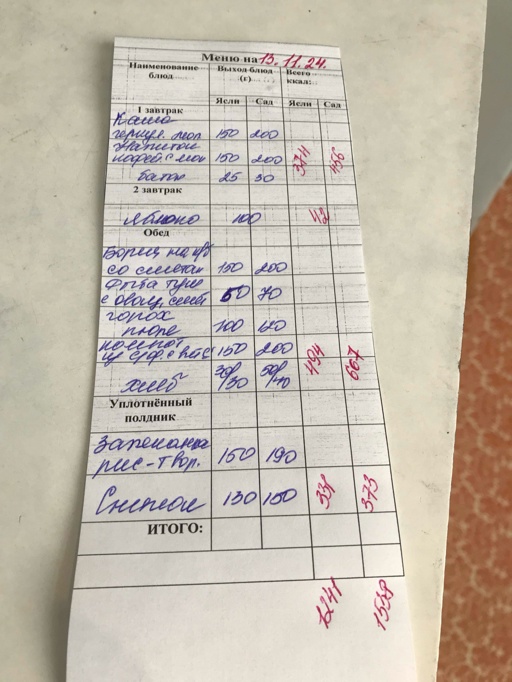 Меню на 13.11.24.
Наименование блюд Выход блюд (г) Всего ккал:
Ясли Сад Ясли Сад
1 завтрак
Каша
геркул. мол 150 200
Напиток
кофей. с мол 150 200 374 456
батон 25 30
2 завтрак
яблоко 100 42
Обед
Борщ на
со сметан 150 200
Рыба туш
с овощ. 50 70
горох
пюре 100 120
компот
150 200 494 667
хлеб 30/30 50/40
Уплотнённый полдник
Запеканка
рис-твор. 150 190
Снежок 130 150 331 373
ИТОГО:
1241 1538